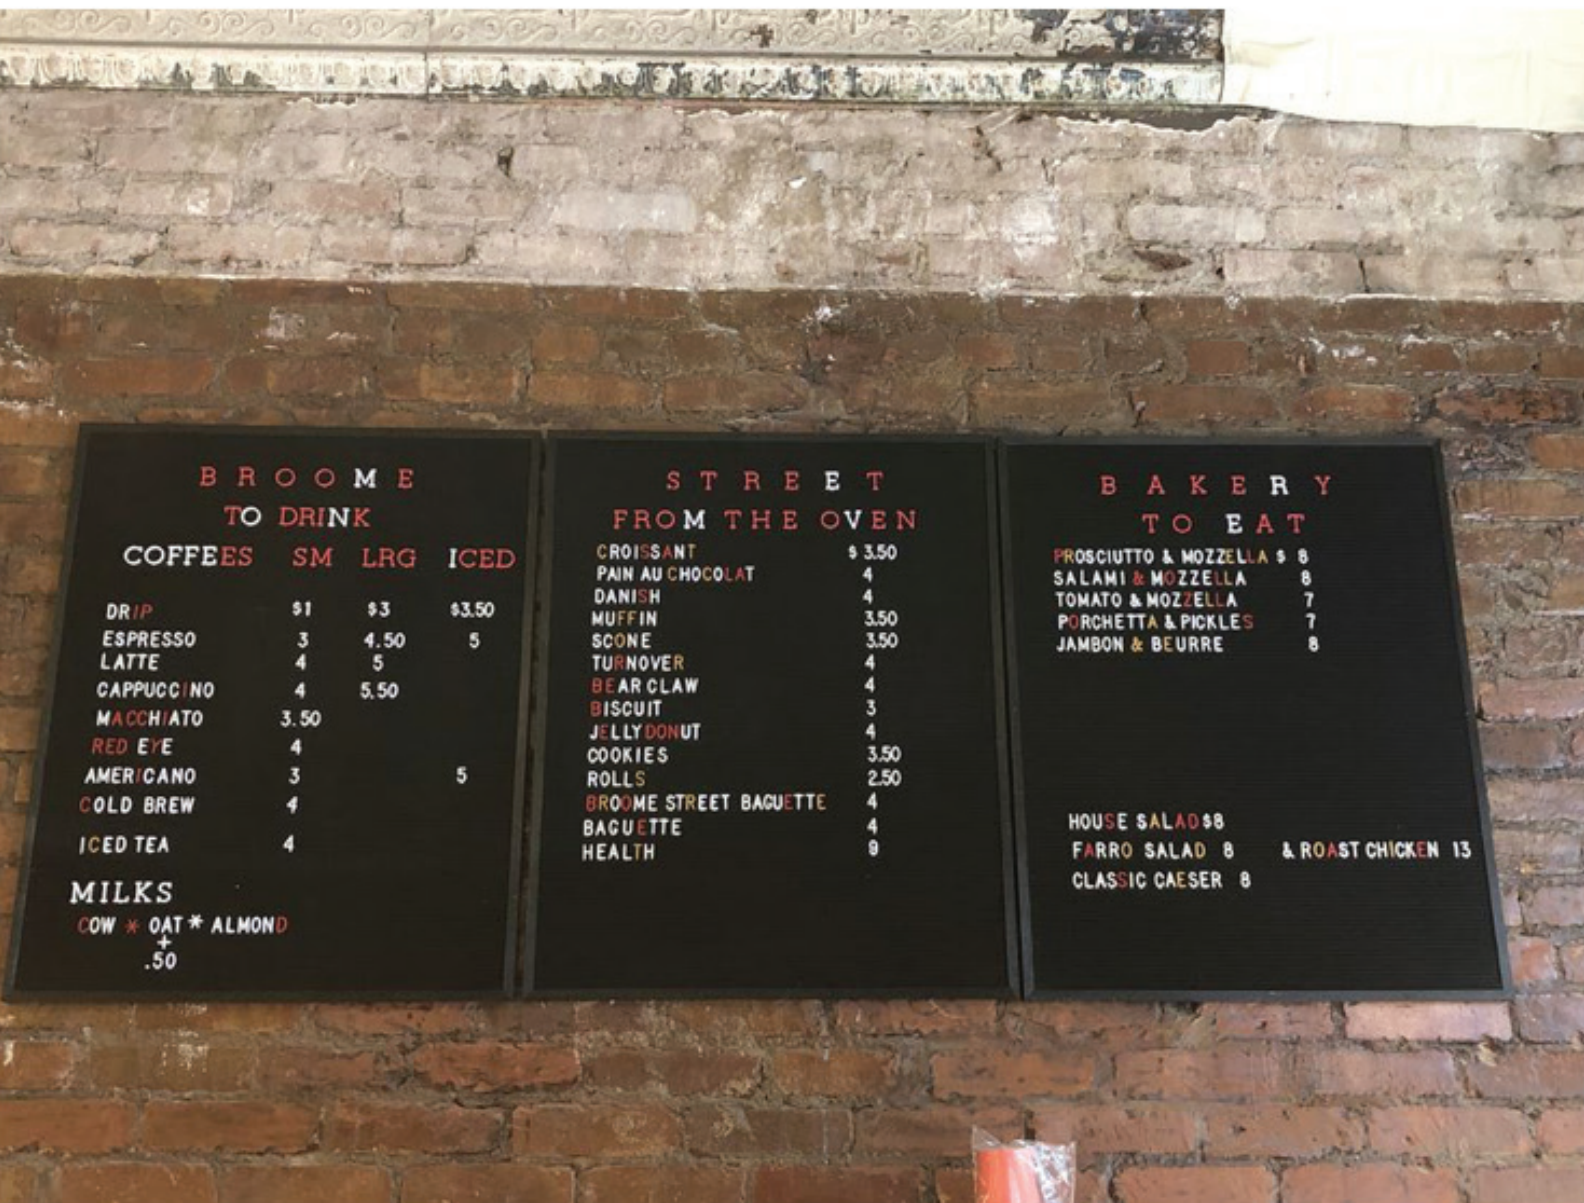 BROOME
TO DRINK
COFFEES SM LRG ICED
DRIP $1 $3 $3.50
ESPRESSO 3 4.50 5
LATTE 4 5
CAPPUCCINO 4 5.50
MACCHIATO 3.50
RED EYE 4
AMERICANO 3 5
COLD BREW 4
ICED TEA 4
MILKS
COW * OAT * ALMOND
+
.50
STREET
FROM THE OVEN
CROISSANT $3.50
PAIN AU CHOCOLAT 4
DANISH 4
MUFFIN 3.50
SCONE 3.50
TURNOVER 4
BEAR CLAW 4
BISCUIT 3
JELLY DONUT 4
COOKIES 3.50
ROLLS 2.50
BROOME STREET BAGUETTE 4
BAGUETTE 4
HEALTH 9
BAKERY
TO EAT
PROSCIUTTO & MOZZELLA $ 8
SALAMI & MOZZELLA 8
TOMATO & MOZZELLA 7
PORCHETTA & PICKLES 7
JAMBON & BEURRE 8
HOUSE SALAD $8
FARRO SALAD 8 & ROAST CHICKEN 13
CLASSIC CAESER 8